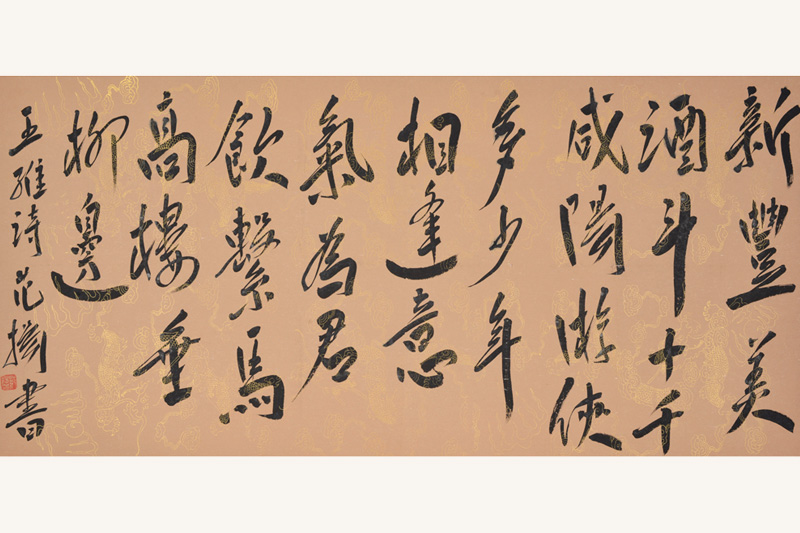 新豐美
酒斗十千
咸陽游俠
多少年
相逢意
氣為君
飲繫馬
高樓垂
柳邊
王維詩 范 書